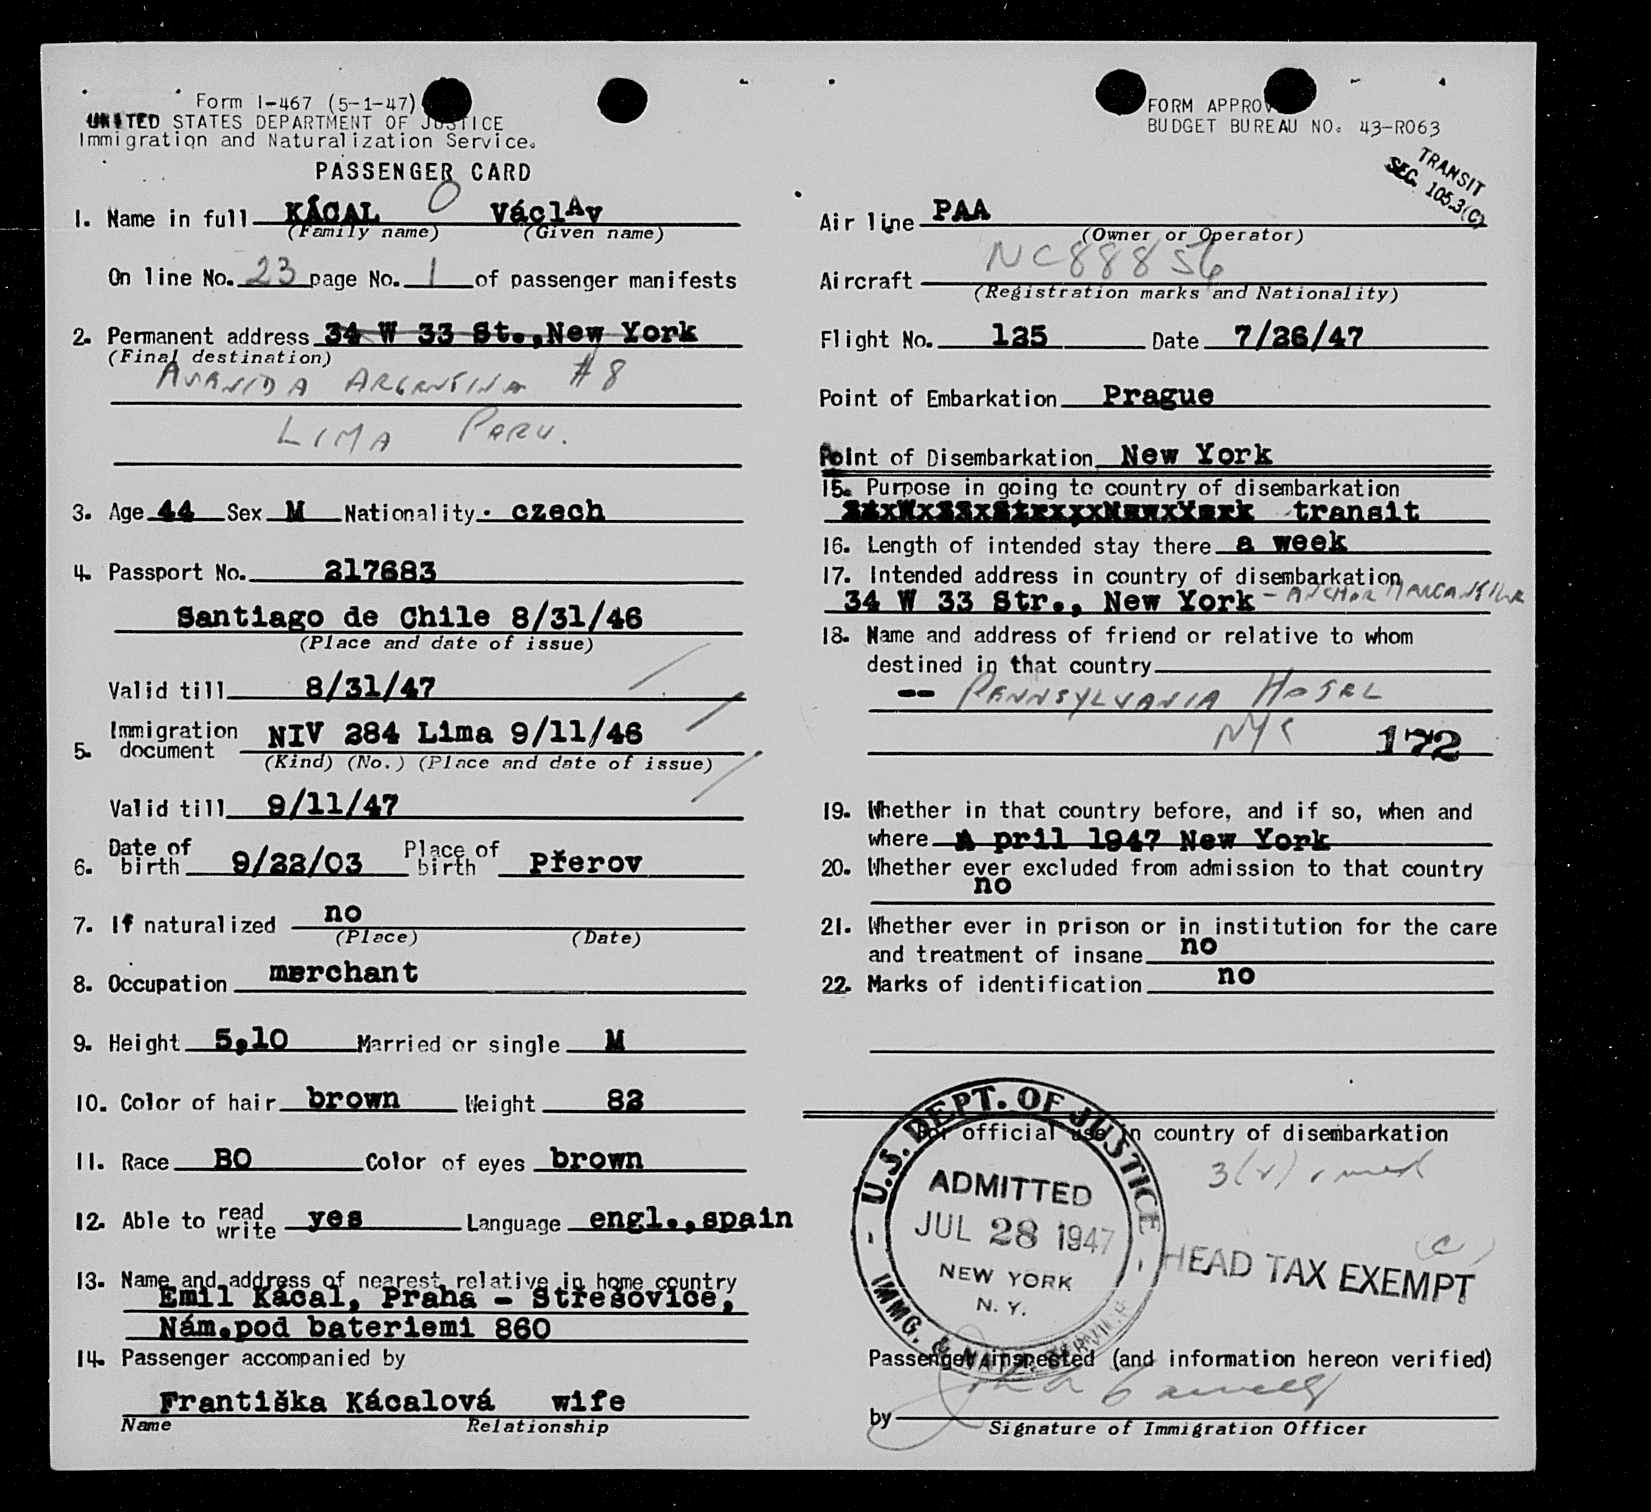 Form I-467 (5-1-47)
UNITED STATES DEPARTMENT OF JUSTICE
Immigration and Naturalization Service.
PASSENGER CARD
1. Name in full KÁCAL VáclAv
(Family name) (Given name)
On line No. 23 page No. 1 of passenger manifests
2. Permanent address 34 W 33 St., New York
(Final destination)
AVANIDA ARGENTINA #8
LIMA PERU.
3. Age 44 Sex M Nationality czech
4. Passport No. 217683
Santiago de Chile 8/31/46
(Place and date of issue)
Valid till 8/31/47
5. Immigration document NIV 284 Lima 9/11/46
(Kind) (No.) (Place and date of issue)
Valid till 9/11/47
6. Date of birth 9/22/03 Place of birth Přerov
7. If naturalized no
(Place) (Date)
8. Occupation merchant
9. Height 5,10 Married or single M
10. Color of hair brown Weight 82
11. Race BO Color of eyes brown
12. Able to read write yes Language engl.,spain
13. Name and address of nearest relative in home country
Emil Kácal, Praha - Střešovice,
Nám.pod bateriemi 860
14. Passenger accompanied by
Františka Kácalová wife
Name Relationship
FORM APPROV
BUDGET BUREAU NO. 43-R063
TRANSIT
SEC. 105.3(C)
Air line PAA
(Owner or Operator)
Aircraft NC88856
(Registration marks and Nationality)
Flight No. 125 Date 7/26/47
Point of Embarkation Prague
Point of Disembarkation New York
15. Purpose in going to country of disembarkation
transit
16. Length of intended stay there a week
17. Intended address in country of disembarkation
34 W 33 Str., New York - ANCHOR
18. Name and address of friend or relative to whom
destined in that country
-- PENNSYLVANIA HOTEL
NYC 172
19. Whether in that country before, and if so, when and
where A pril 1947 New York
20. Whether ever excluded from admission to that country
no
21. Whether ever in prison or in institution for the care
and treatment of insane no
22. Marks of identification no
For official use in country of disembarkation
U.S. DEPT. OF JUSTICE
ADMITTED
JUL 28 1947
NEW YORK
N. Y.
IMMG. & NAT'Z. SERVICE
HEAD TAX EXEMPT
Passenger inspected (and information hereon verified)
by
Signature of Immigration Officer